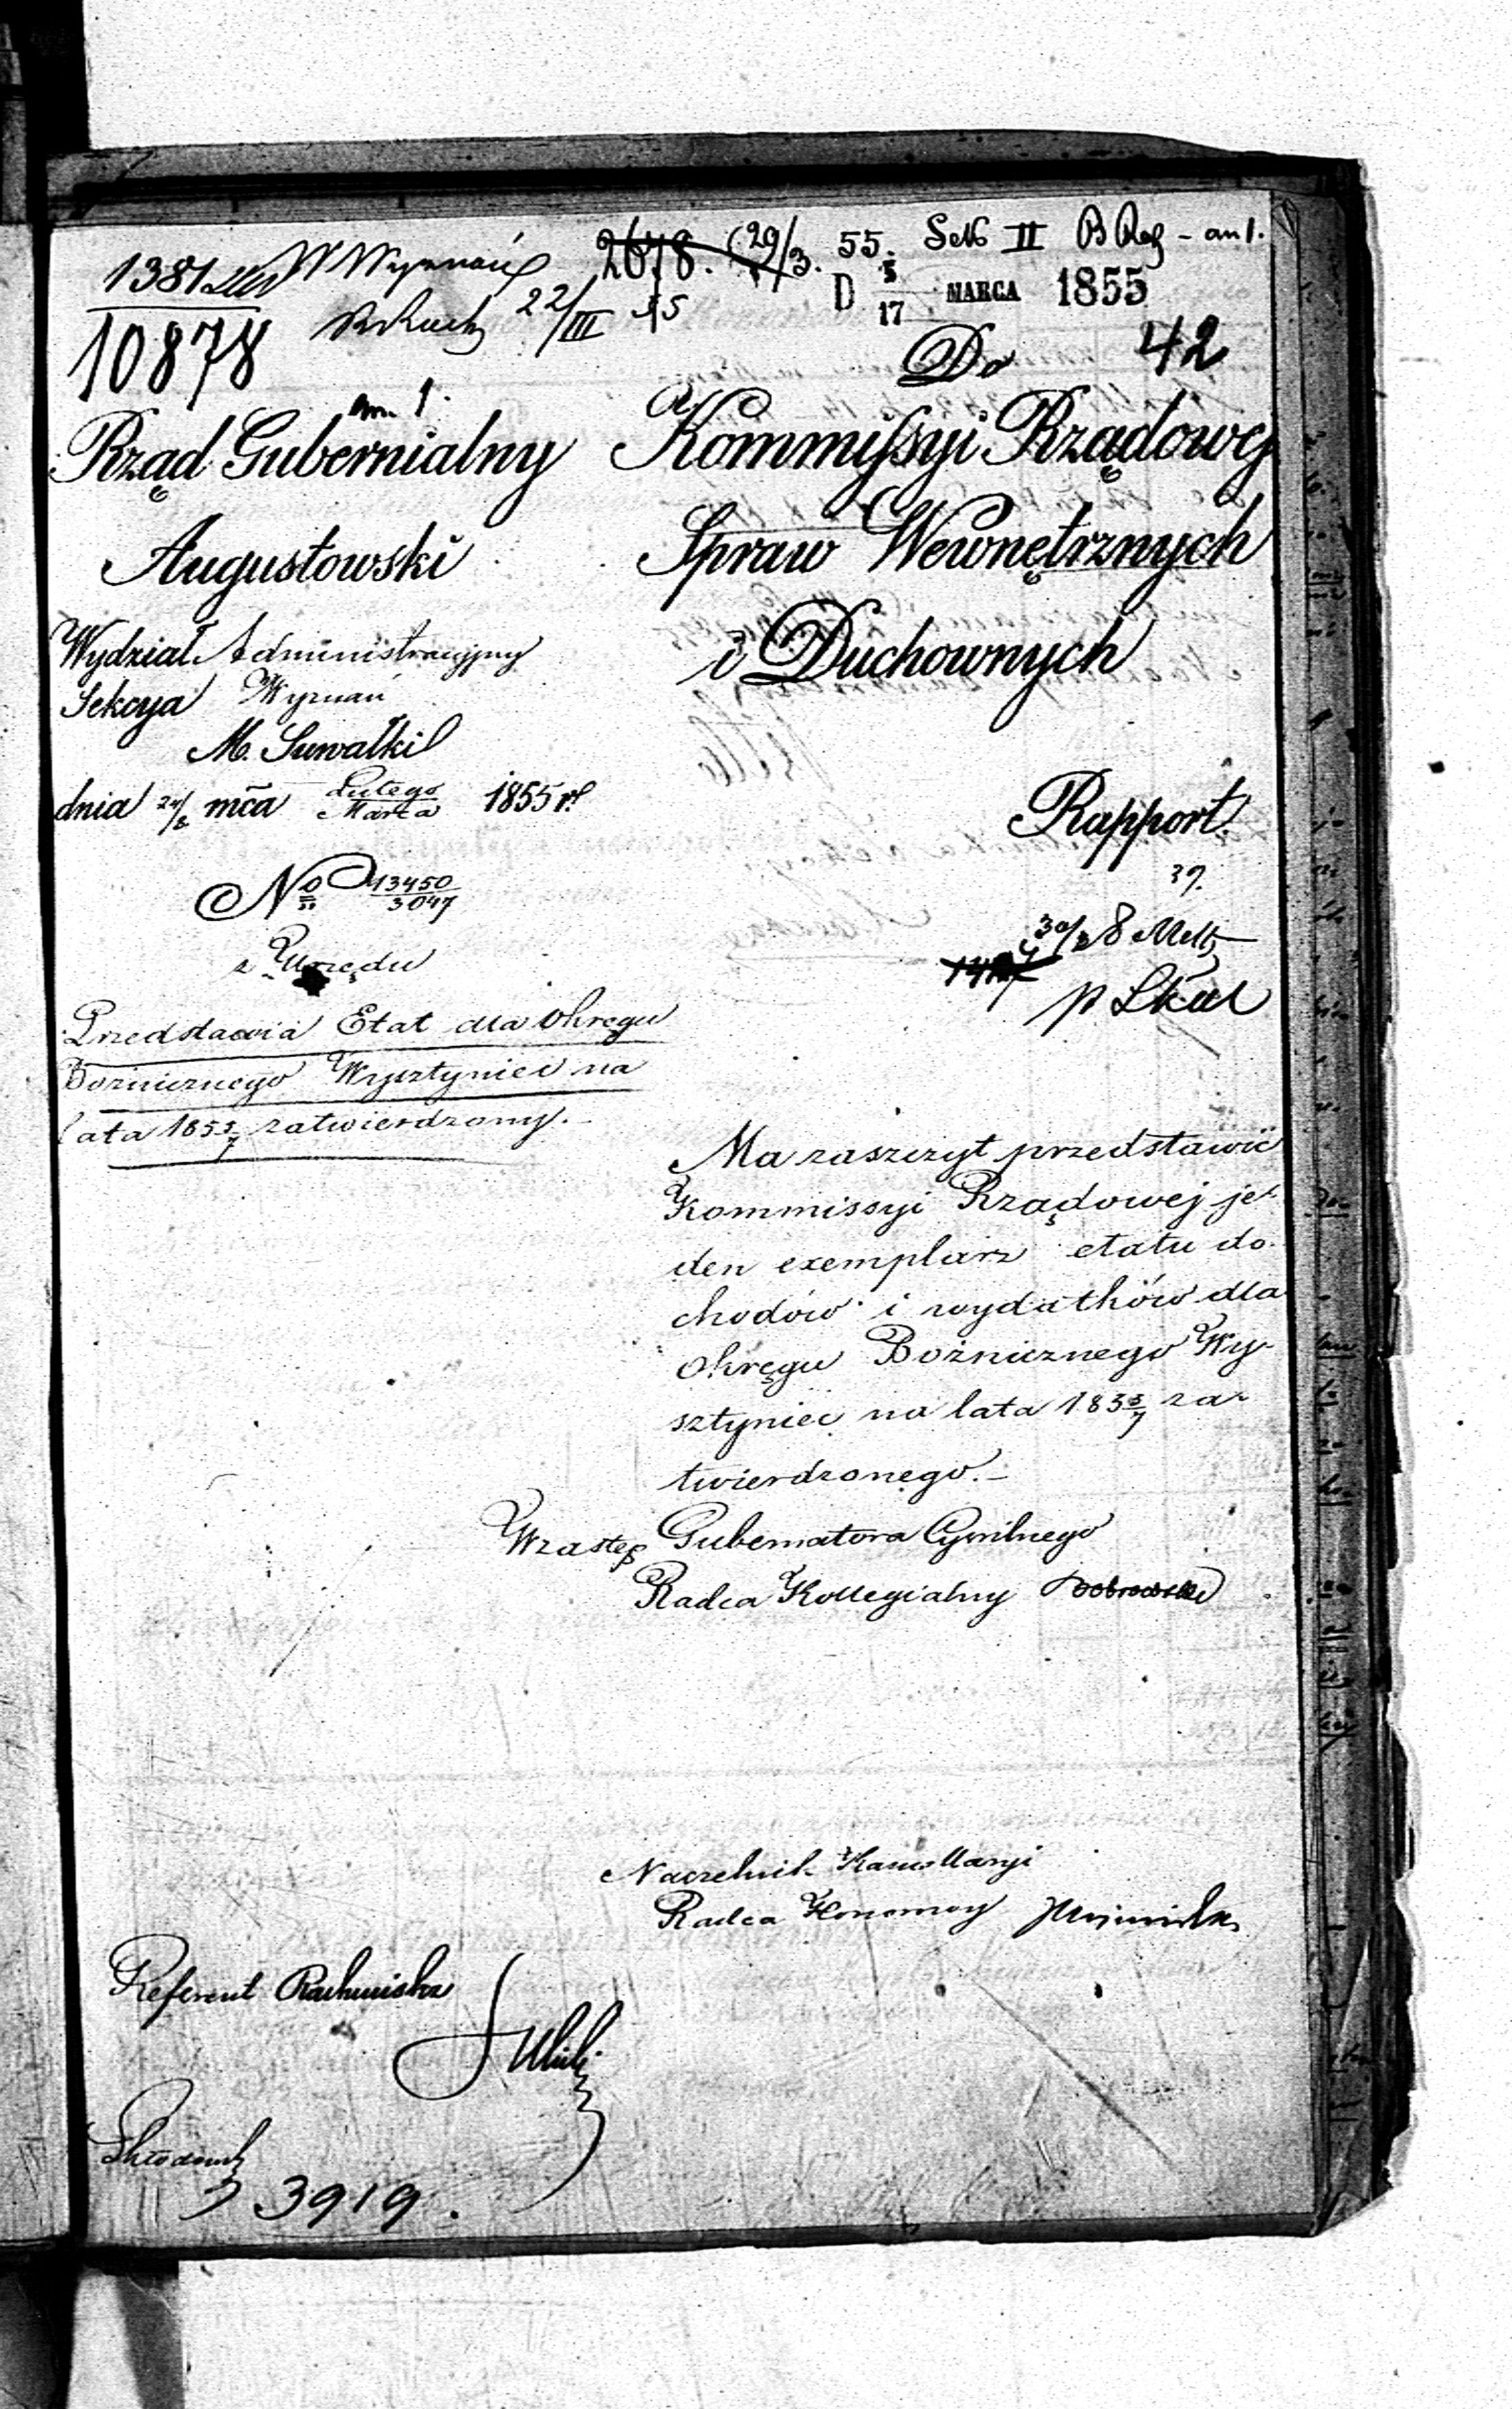 1381 W Wyznań 2678. 29/3. 55. Sek II
D 5/17 MARCA 1855
10878 22/III 55
42
Do
ann. 1.
Rząd Gubernialny
Augustowski
Wydział Administracyjny
Sekcya Wyznań
M. Suwałki
dnia 24/8 mca Lutego/Marca 1855 r.
No 13450/3047
z Urzędu
Przedstawia Etat dla Okręgu
Bożnicznego Wysztyniec na
lata 1855/7 zatwierdzony.
Kommissyi Rządowej
Spraw Wewnętrznych
i Duchownych
Rapport.
39.
Ma zaszczyt przedstawić
Kommissyi Rządowej je-
den exemplarz etatu do-
chodów i wydatków dla
Okręgu Bożnicznego Wy-
sztyniec na lata 1855/7 za-
twierdzonego.–
W zastęp Gubernatora Cywilnego
Radca Kollegialny Dobrowolski
Naczelnik Kancellaryi
Radca Honorowy
Referent
3919.